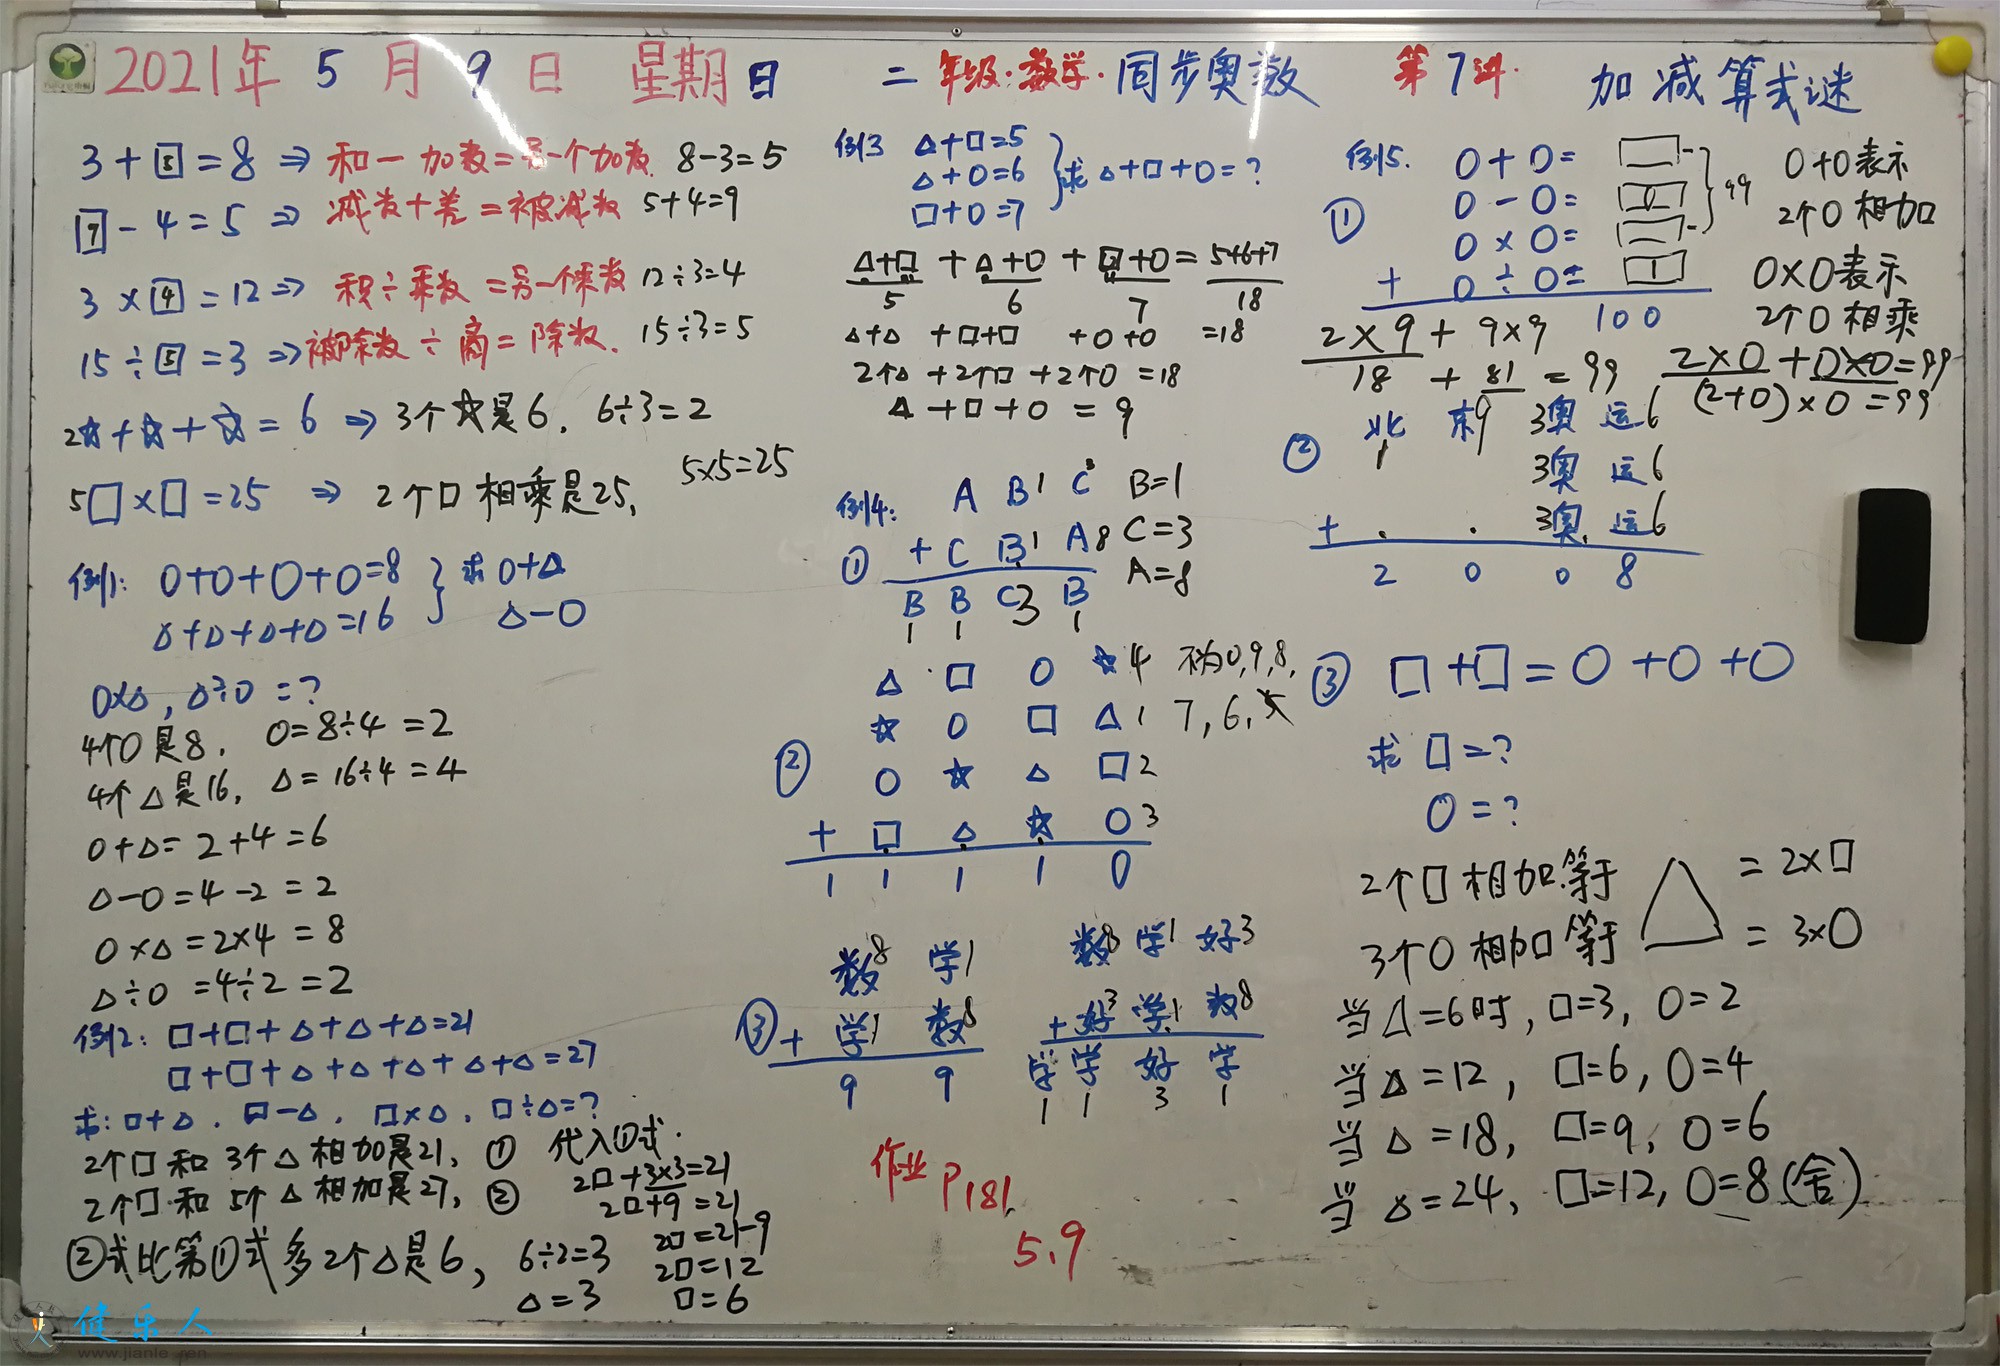 2021年 5月 9日 星期日 二年级·数学·同步奥数 第7讲· 加减算式谜
3+5=8 ⇒ 和一加数=另一个加数 8-3=5
9-4=5 ⇒ 减数+差=被减数 5+4=9
3×4=12 ⇒ 积÷乘数=另一个乘数 12÷3=4
15÷5=3 ⇒ 被除数÷商=除数. 15÷3=5
2☆+☆+☆=6 ⇒ 3个☆是6. 6÷3=2
5□×□=25 ⇒ 2个□相乘是25, 5×5=25
例1: O+O+O+O=8 } 求 O+△
△+△+△+△=16 △-O
O×△, △÷O=?
4个O是8. O=8÷4=2
4个△是16, △=16÷4=4
O+△=2+4=6
△-O=4-2=2
O×△=2×4=8
△÷O=4÷2=2
例2: □+□+△+△+△=21
□+□+△+△+△+△+△=27
求:□+△. □-△. □×△. □÷△=?
2个□和3个△相加是21, ①
2个□和5个△相加是27, ②
②式比第①式多2个△是6, 6÷2=3
△=3
代入①式.
2□+3×3=21
2□+9=21
2□=21-9
2□=12
□=6
例3 △+□=5
△+O=6 } 求 △+□+O=?
□+O=7
△+□ + △+O + □+O = 5+6+7
5 6 7 18
△+△ +□+□ +O+O =18
2个△+2个□+2个O=18
△+□+O=9
例4:
① A B1 C3 B=1
+ C B1 A8 C=3
B B C3 B A=8
1 1 1
② △ □ O ☆4 不为0,9,8,
☆ O □ △1 7,6,5
O ☆ △ □2
+ □ △ ☆ O3
1 1 1 1 0
③ 数8 学1
+ 学1 数8
9 9
数8 学1 好3
+ 好3 学1 数8
学 学 好 学
1 1 3 1
作业 P181.
5.9
例5.
① O+O=□
O-O=0
O×O=□
+ O÷O=1
100
99
O+O表示
2个O相加
O×O表示
2个O相乘
2×9+9×9
18+81=99
2×O+O×O=99
(2+O)×O=99
② 北 京9 3奥 运6
1
3奥 运6
+ 3奥 运6
2 0 0 8
③ □+□=O+O+O
求 □=?
O=?
2个□相加等于 △ =2×□
3个O相加等于 =3×O
当△=6时, □=3, O=2
当△=12, □=6, O=4
当△=18, □=9, O=6
当△=24, □=12, O=8(舍)
健乐人